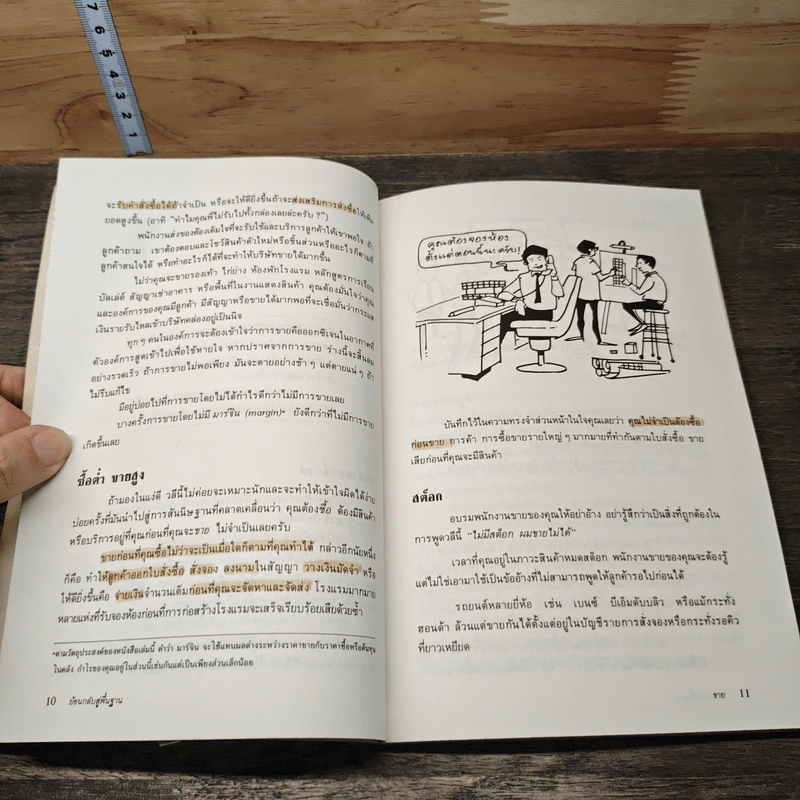 7 6 5 4 3 2 1
จะรับคำสั่งซื้อได้ถ้าจำเป็น หรือจะให้ดียิ่งขึ้นถ้าจะส่งเสริมการสั่งซื้อให้เพิ่ม
ยอดสูงขึ้น (อาทิ "ทำไมคุณพี่ไม่รับไปทั้งกล่องเลยล่ะครับ ?")
พนักงานส่งของต้องเต็มใจที่จะรับใช้และบริการลูกค้าให้เขาพอใจ ถ้า
ลูกค้าถาม เขาต้องตอบและโชว์สินค้าตัวใหม่หรือชิ้นส่วนหรืออะไรก็ตามที่
ลูกค้าสนใจได้ หรือทำอะไรก็ได้ที่จะทำให้บริษัทขายได้มากขึ้น
ไม่ว่าคุณจะขายรองเท้า ไก่ย่าง ห้องพักโรงแรม หลักสูตรการเรียน
บัลเล่ต์ สัญญาเช่าอาคาร หรือพื้นที่ในงานแสดงสินค้า คุณต้องมั่นใจว่าคุณ
และองค์การของคุณมีลูกค้า มีสัญญาหรือขายได้มากพอที่จะเชื่อมั่นว่ากระแส
เงินรายรับไหลเข้าบริษัทคล่องอยู่เป็นนิจ
ทุก ๆ คนในองค์การจะต้องเข้าใจว่าการขายคือออกซิเจนในอากาศที่
ตัวองค์การสูดเข้าไปเพื่อใช้หายใจ หากปราศจากการขาย ร่างนี้จะสิ้นลม
อย่างรวดเร็ว ถ้าการขายไม่พอเพียง มันจะตายอย่างช้า ๆ แต่ตายแน่ ๆ ถ้า
ไม่รีบแก้ไข
มีอยู่บ่อยไปที่การขายโดยไม่ได้กำไรดีกว่าไม่มีการขายเลย
บางครั้งการขายโดยไม่มี มาร์จิน (margin)* ยังดีกว่าที่ไม่มีการขาย
เกิดขึ้นเลย
ซื้อต่ำ ขายสูง
ถ้ามองในแง่ดี วลีนี้ไม่ค่อยจะเหมาะนักและจะทำให้เข้าใจผิดได้ง่าย
บ่อยครั้งที่มันนำไปสู่การสันนิษฐานที่คลาดเคลื่อนว่า คุณต้องซื้อ ต้องมีสินค้า
หรือบริการอยู่ที่คุณก่อนที่คุณจะขาย ไม่จำเป็นเลยครับ
ขายก่อนที่คุณซื้อไม่ว่าจะเป็นเมื่อใดก็ตามที่คุณทำได้ กล่าวอีกนัยหนึ่ง
ก็คือ ทำให้ลูกค้าออกใบสั่งซื้อ สั่งจอง ลงนามในสัญญา วางเงินมัดจำ หรือ
ให้ดียิ่งขึ้นคือ จ่ายเงินจำนวนเต็มก่อนที่คุณจะจัดหาและจัดส่ง โรงแรมมากมาย
หลายแห่งที่รับจองห้องก่อนที่การก่อสร้างโรงแรมจะเสร็จเรียบร้อยเสียด้วยซ้ำ
*ตามวัตถุประสงค์ของหนังสือเล่มนี้ คำว่า มาร์จิน จะใช้แทนผลต่างระหว่างราคาขายกับราคาซื้อหรือต้นทุน
ในคลัง กำไรของคุณอยู่ในส่วนนี้เช่นกันแต่เป็นเพียงส่วนเล็กน้อย
10 ย้อนกลับสู่พื้นฐาน
คุณต้องจองห้อง
ตั้งแต่ตอนนี้นะครับ!
บันทึกไว้ในความทรงจำส่วนหน้าในใจคุณเลยว่า คุณไม่จำเป็นต้องซื้อ
ก่อนขาย การค้า การซื้อขายรายใหญ่ ๆ มากมายที่ทำกันตามใบสั่งซื้อ ขาย
เสียก่อนที่คุณจะมีสินค้า
สต็อก
อบรมพนักงานขายของคุณให้อย่าอ้าง อย่ารู้สึกว่าเป็นสิ่งที่ถูกต้องใน
การพูดวลีนี้ "ไม่มีสต็อก ผมขายไม่ได้"
เวลาที่คุณอยู่ในภาวะสินค้าหมดสต็อก พนักงานขายของคุณจะต้องรู้
แต่ไม่ใช่เอามาใช้เป็นข้ออ้างที่ไม่สามารถพูดให้ลูกค้ารอไปก่อนได้
รถยนต์หลายยี่ห้อ เช่น เบนซ์ บีเอ็มดับบลิว หรือแม้กระทั่ง
ฮอนด้า ล้วนแต่ขายกันได้ตั้งแต่อยู่ในบัญชีรายการสั่งจองหรือกระทั่งรอคิว
ที่ยาวเหยียด
ขาย 11